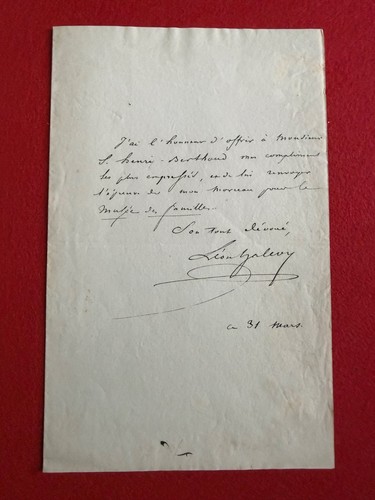 J'ai l'honneur d'offrir à Monsieur
S. henri-Berthoud mes compliments
les plus empressés, et de lui renvoyer
l'épreuve de mon morceau pour le
Musée des familles
Son tout dévoué,
Léon halevy
ce 31 mars.